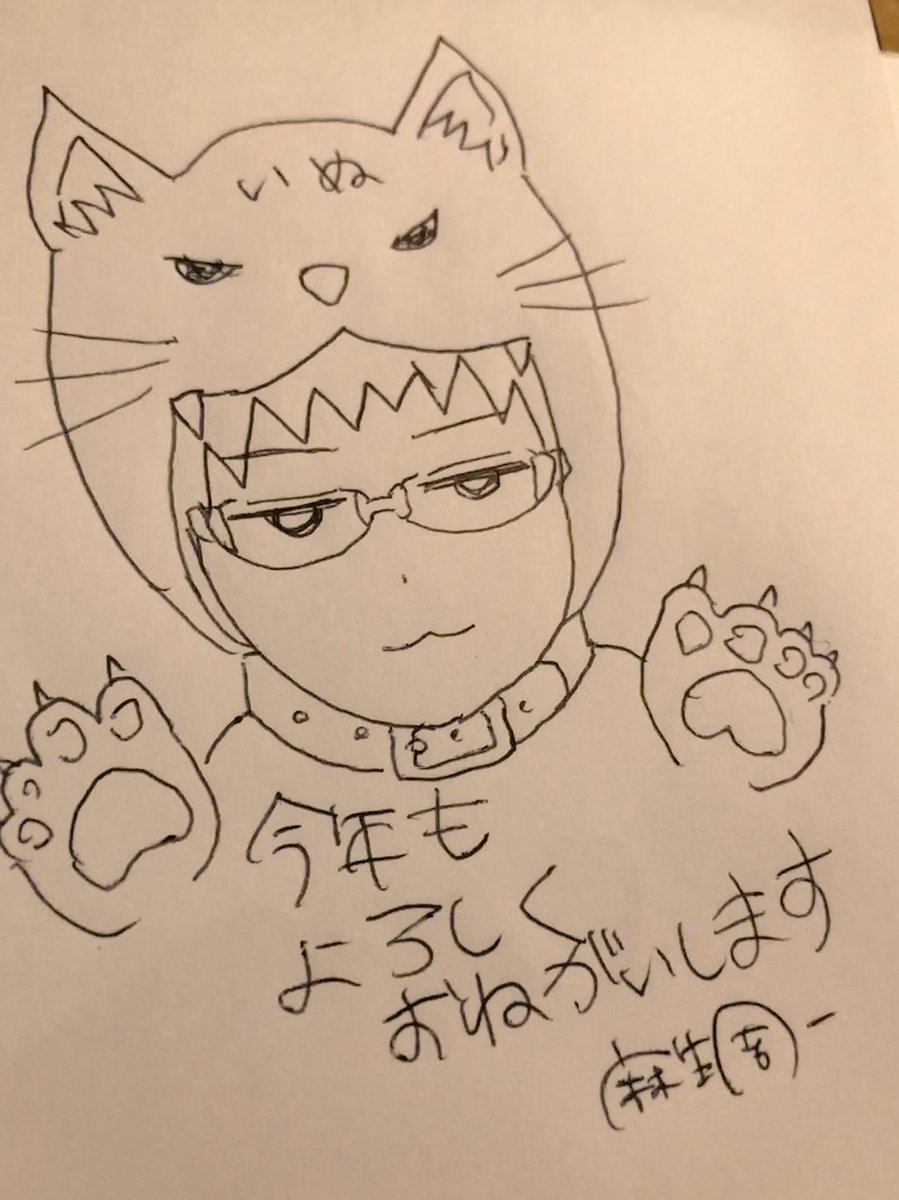 いぬ
今年も
よろしく
おねがいします
麻生周一